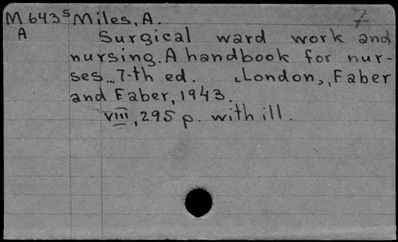 M643s Miles, A. 7
A Surgical ward work and
nursing. A handbook for nur-
ses... 7-th ed. London, Faber
and Faber, 1943.
VIII, 295 p. with ill.